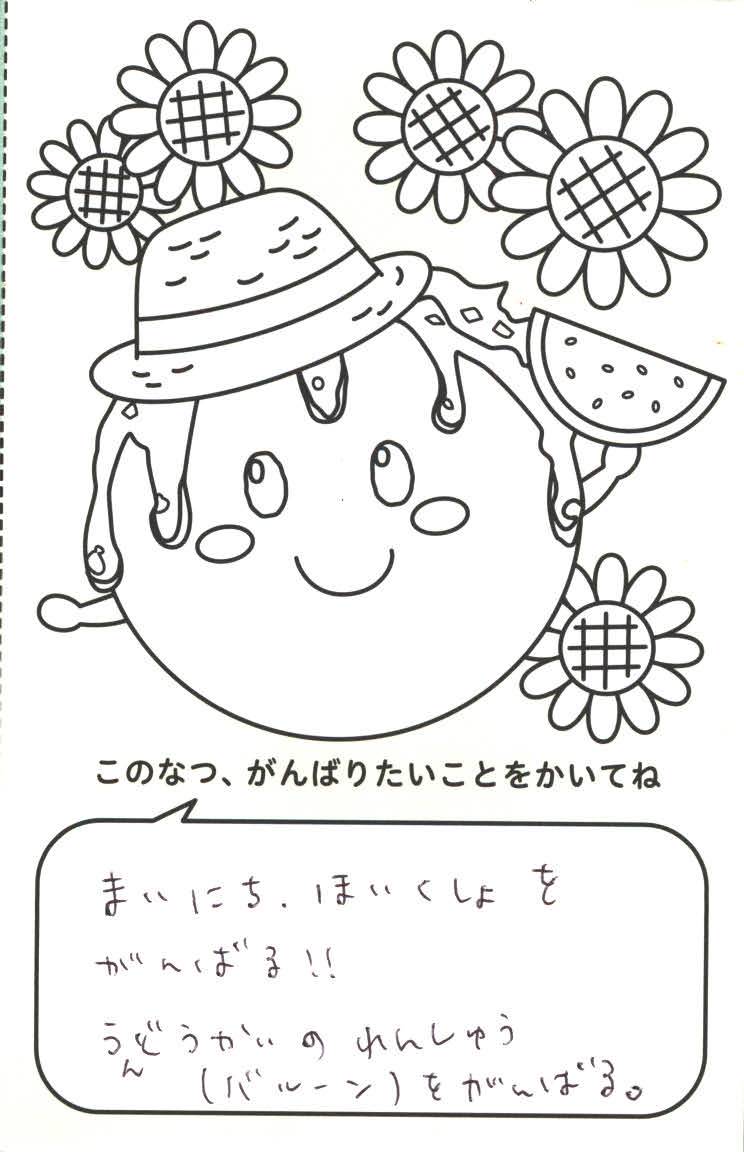 このなつ、がんばりたいことをかいてね
まいにち.ほいくしょを
がんばる!!
うんどうかいの れんしゅう
(バルーン)をがんばる。